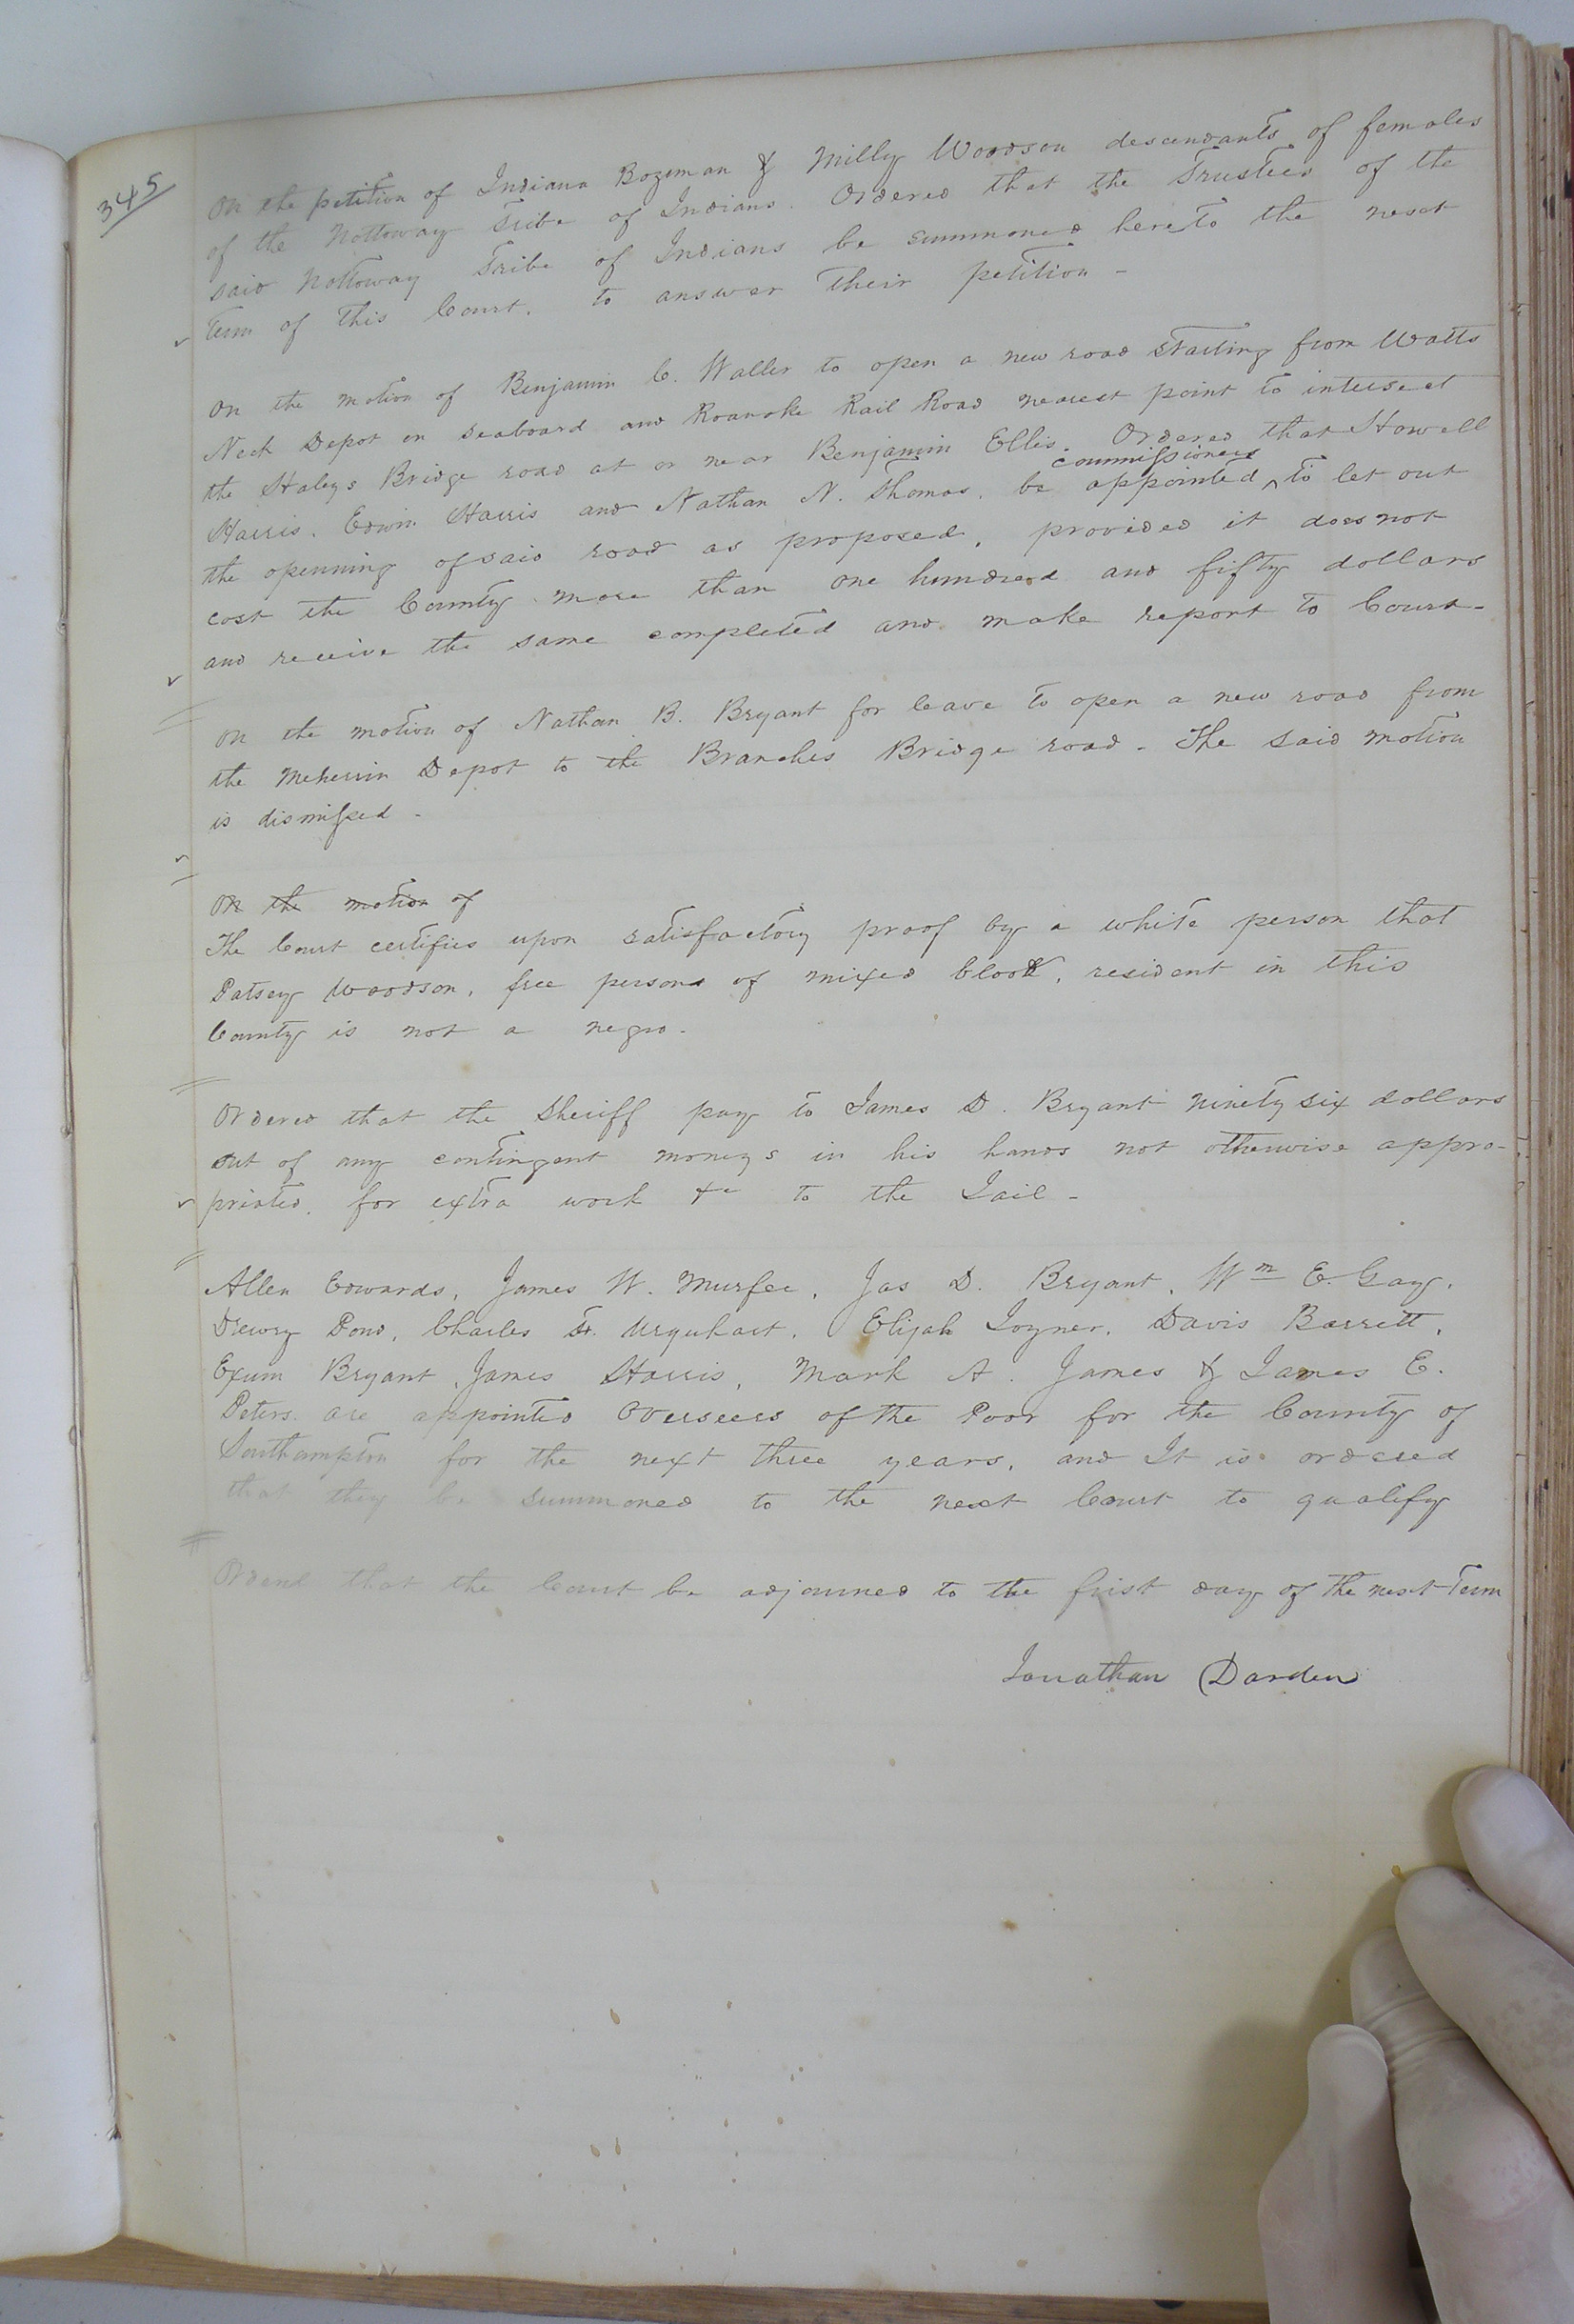 345
On the petition of Indiana Bozeman & Milly Woodson descendants of females
of the Nottoway Tribe of Indians. Ordered that the Trustees of the
said Nottoway Tribe of Indians be summoned here to the next
Term of this Court, to answer their petition -
On the motion of Benjamin C. Waller to open a new road starting from Watts
Neck Depot on Seaboard and Roanoke Rail Road nearest point to intersect
the Haleys Bridge road at or near Benjamin Ellis. Ordered that Howell
commissioners
Harris, Edwin Harris and Nathan N. Thomas, be appointed ^ to let out
the openning of said road as proposed, provided it does not
cost the County more than one hundred and fifty dollars
and receive the same completed and make report to Court-
On the motion of Nathan B. Bryant for leave to open a new road from
the Meherrin Depot to the Branches Bridge road - The said motion
is dismissed -
On the motion of
The Court certifies upon satisfactory proof by a white person that
Patsey Woodson, free person of mixed blood, resident in this
County is not a negro.
Ordered that the Sheriff pay to James D. Bryant ninety six dollars
out of any contingent moneys in his hands not otherwise appro-
priated, for extra work &c to the Jail -
Allen Edwards, James W. Murfee, Jas D. Bryant, Wm E. Gay,
Drewry Pond, Charles F. Urquhart, Elijah Joyner, Davis Barrett,
Exum Bryant, James Harris, Mark A. James & James E.
Peters are appointed Overseers of the Poor for the County of
Southampton for the next three years, and It is ordered
that they be summoned to the next Court to qualify
Ordered that the Court be adjourned to the first day of the next Term
Jonathan Darden